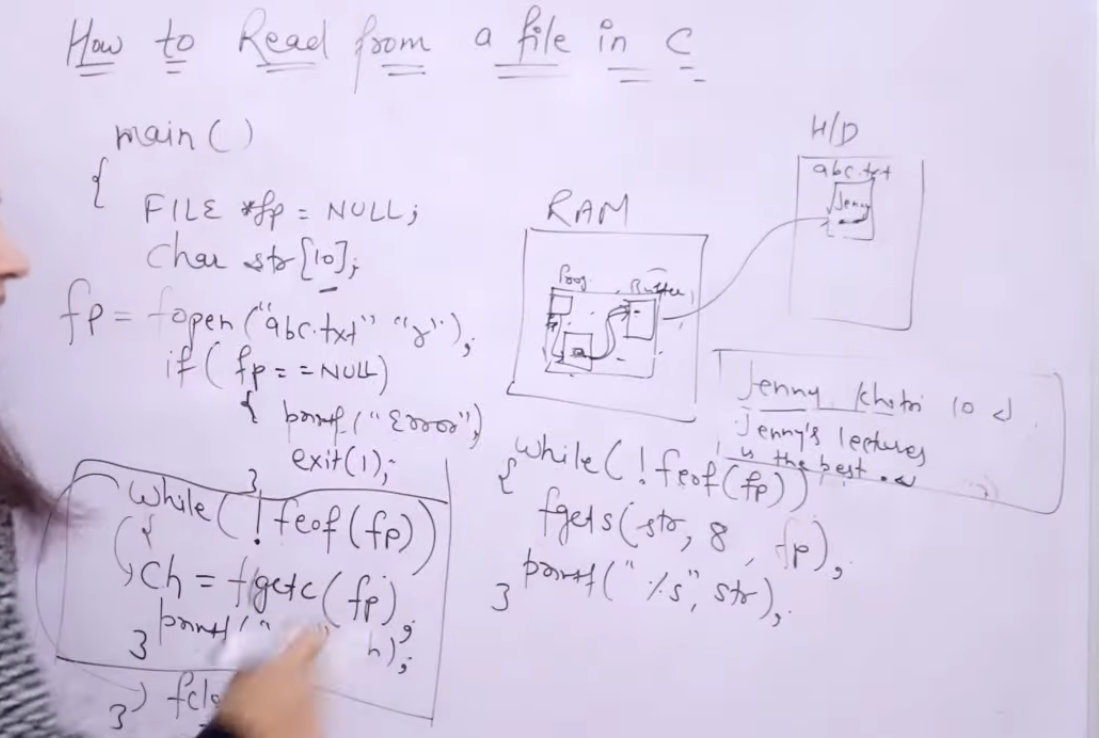 How to Read from a file in C
main()
{
FILE *fp = NULL;
char str[10];
fp = fopen("abc.txt" "r");
if( fp==NULL)
{ printf("Error")
exit(1);
}
while(!feof(fp))
{
ch = fgetc(fp);
printf("
h);
}
}
RAM
Prog
Buffer
H/D
abc.txt
Jenny
Jenny Khatri 10
Jenny's lectures
is the best.
while(!feof(fp))
{
fgets(str, 8, fp);
printf("%s", str);
}